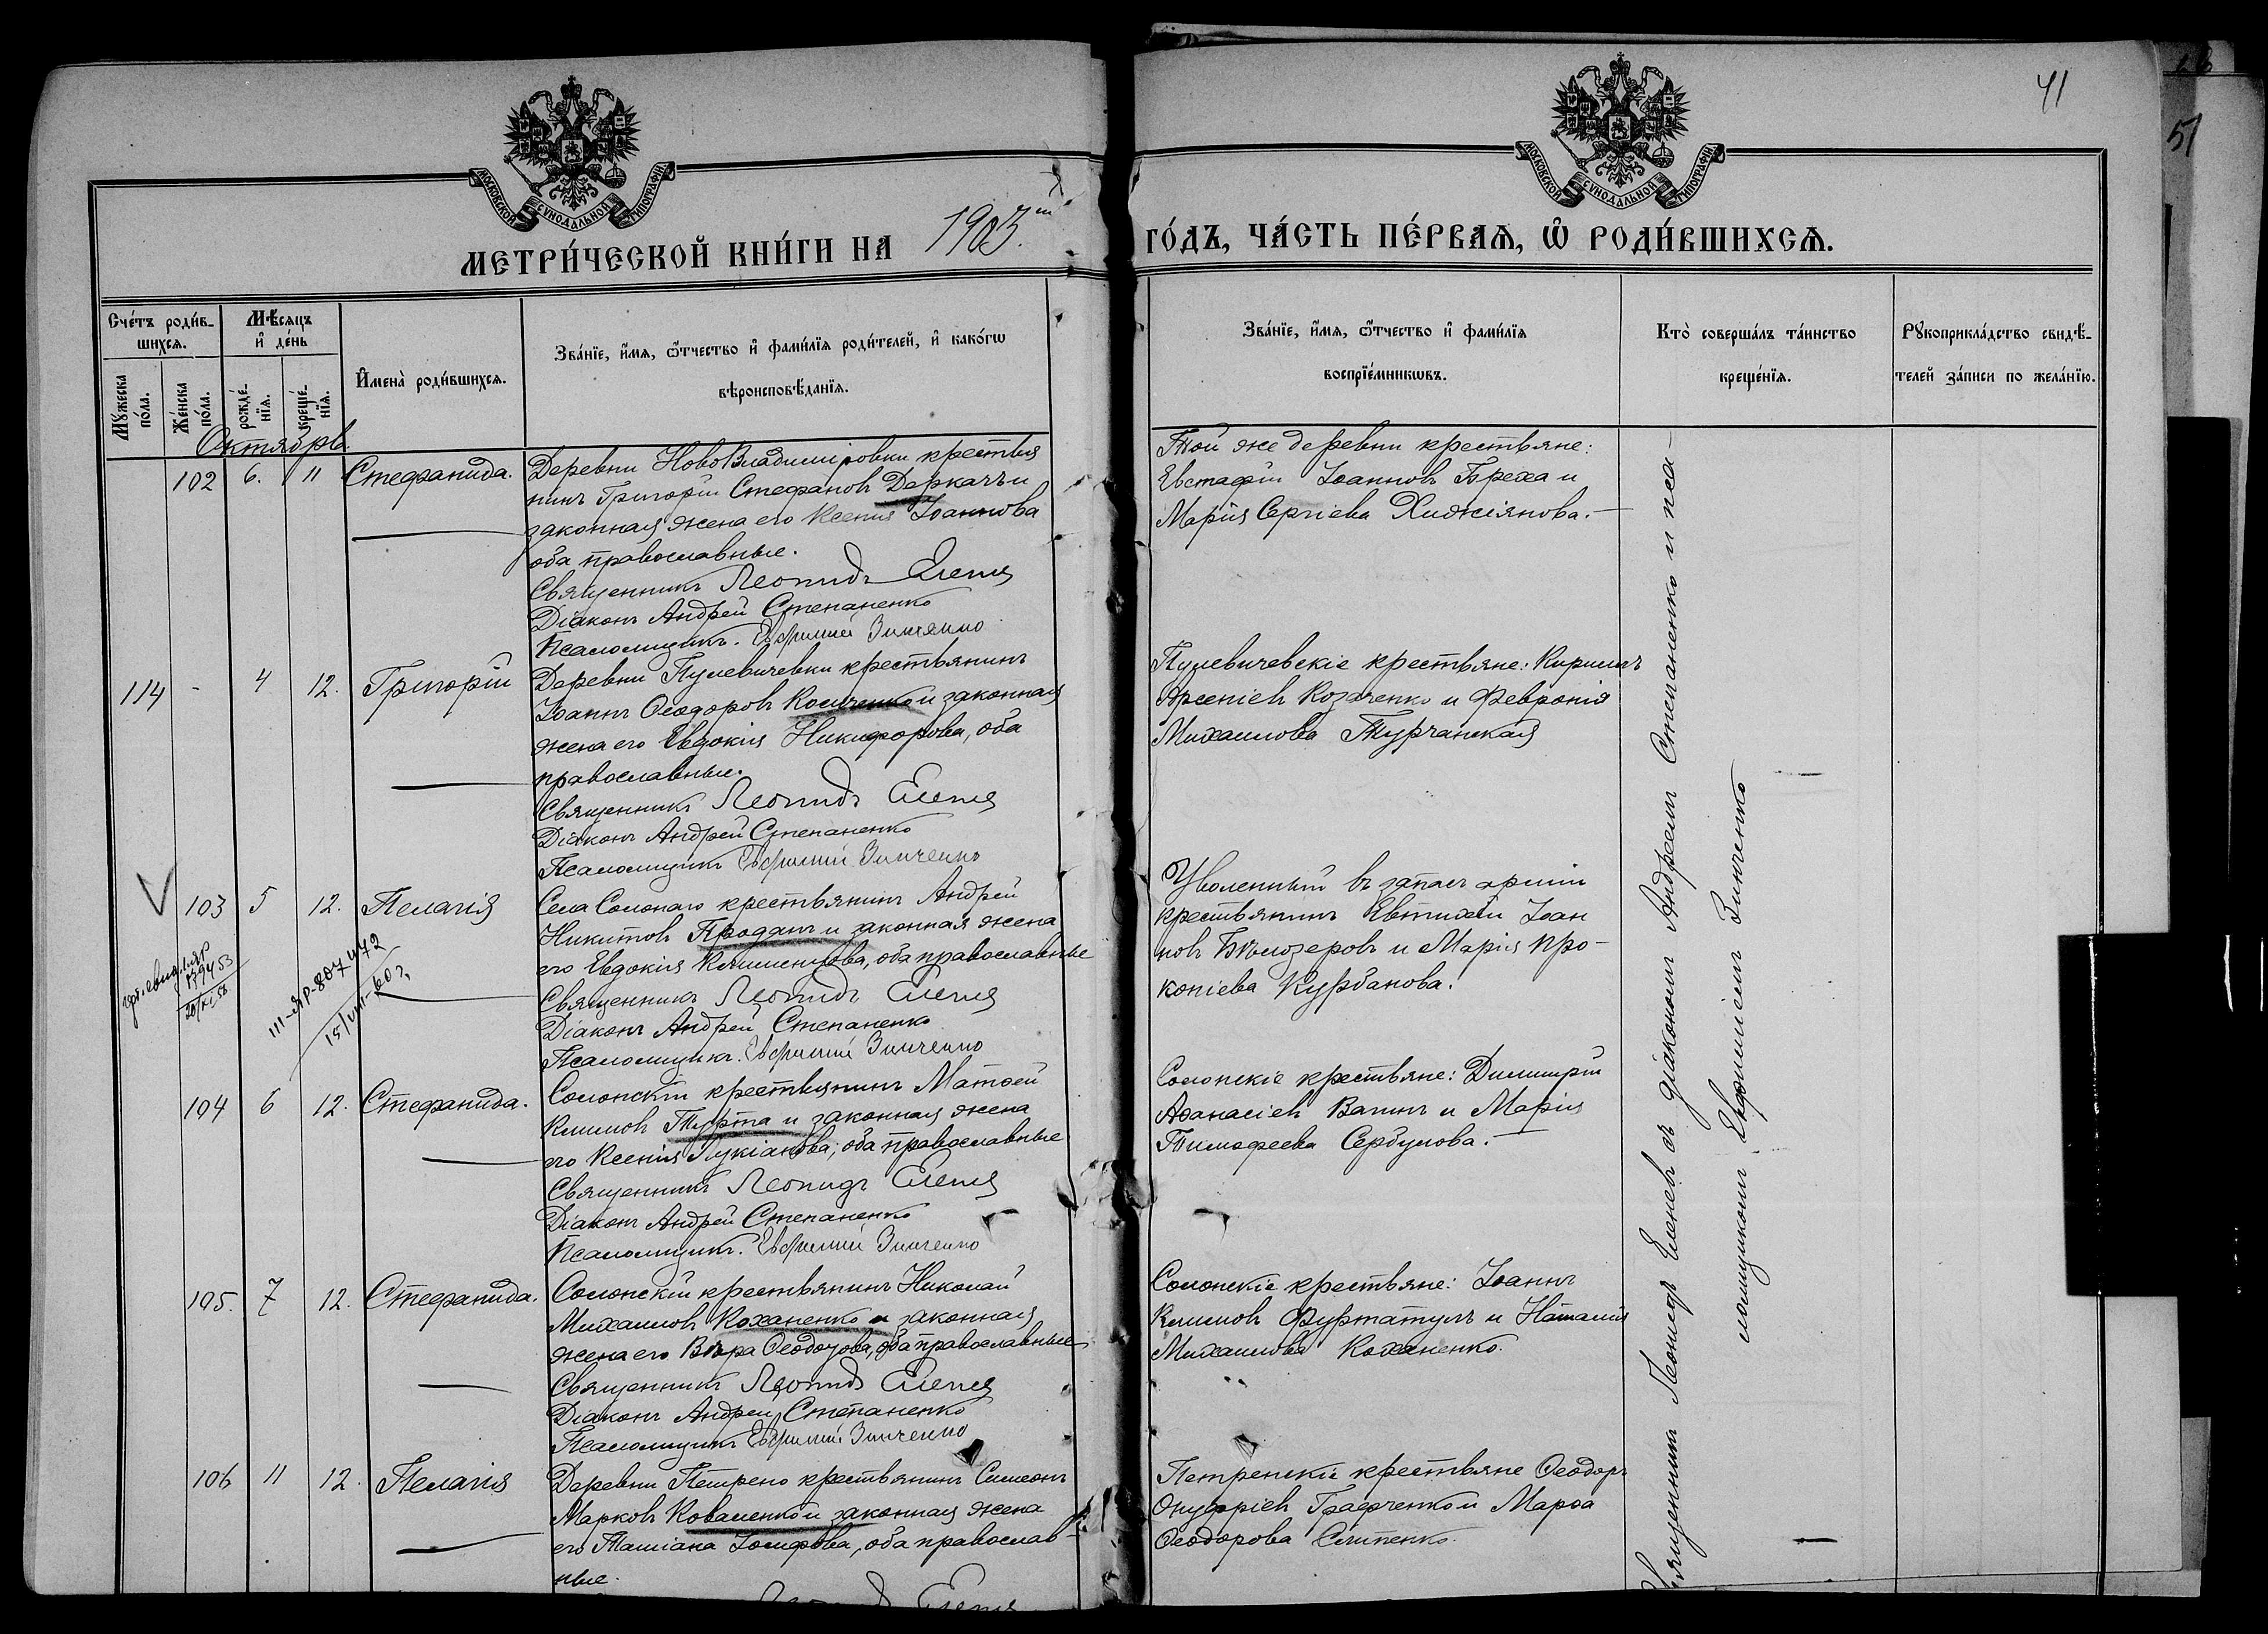 41
51
МОСКОВСКОЙ СѴНОДАЛЬНОЙ ТИПОГРАФІИ
МОСКОВСКОЙ СѴНОДАЛЬНОЙ ТИПОГРАФІИ
МЕТРИ́ЧЕСКОЙ КНИ́ГИ НА 1903.й
ГО́ДЪ, ЧА́СТЬ ПЕ́РВАѦ, Ѽ РОДИ́ВШИХСѦ.
Сче́тъ роди́в-
шихсѧ.
Мꙋ́жеска
по́ла.
Же́нска
по́ла.
Мѣ́сѧцъ
и҆ де́нь
рожде́-
нїѧ.
креще́-
нїѧ.
И҆мена̀ роди́вшихсѧ.
Зва́нїе, и҆́мѧ, ѻ҆́тчество и҆ фами́лїѧ роди́телей, и҆ како́гѡ
вѣроисповѣ́данїѧ.
Зва́нїе, и҆́мѧ, ѻ҆́тчество и҆ фами́лїѧ
воспрїе́мникѡвъ.
Кто̀ соверша́лъ та́инство
креще́нїѧ.
Рꙋкоприкла́дство свидѣ́-
телей за́писи по жела́нїю.
Октябрь.
102 6. 11 Стефанида.
Деревни НовоВладиміровки крестья
нинъ Григорій Стефановъ Деркачъ и
законная жена его Ксенія Іоаннова
оба православные.
Священникъ Леонидъ Еленев
Діаконъ Андрей Степаненко
Псаломщикъ. Евфимій Зинченко
Той же деревни крестьяне:
Евстафій Іоанновъ Бреха и
Марія Сергіева Хиджіянова.
114 - 4 12. Григорій
Деревни Пулевичевки крестьянинъ
Іоаннъ Ѳеодоровъ и законная
жена его Евдокія Никифорова, оба
православные.
Священникъ Леонидъ Еленев
Діаконъ Андрей Степаненко
Псаломщикъ Евфимій Зинченко
Пулевичевскіе крестьяне: Кириллъ
Арсеніевъ Козаченко и Февронія
Михаилова Турчанская
103 5 12. Пелагія
Села Солонаго крестьянинъ Андрей
Никитовъ Проданъ и законная жена
его Евдокія Климентова, оба православные
Священникъ Леонидъ Еленев
Діаконъ Андрей Степаненко
Псаломщикъ. Евфимій Зинченко
Уволенный въ запасъ арміи
крестьянинъ Евтихій Іоан
новъ Бѣлозеровъ и Марія Про-
копіева Курбанова.
III-ЯР-807472
15/VIII-60г.
104 6 12. Стефанида.
Солонскій крестьянинъ Матѳей
Климовъ Турта и законная жена
его Ксенія Лукіанова; оба православные
Священникъ Леонидъ Еленев
Діаконъ Андрей Степаненко
Псаломщикъ. Евфимій Зинченко
Солонскіе крестьяне: Димитрій
Аѳанасіевъ Вапинъ и Марія
Тимофеева Сербулова.
105. 7 12. Стефанида.
Солонскій крестьянинъ Николай
Михаиловъ Коханенко и законная
жена его Вѣра Ѳеодорова, оба православные
Священникъ Леонидъ Еленев
Діаконъ Андрей Степаненко
Псаломщикъ Евфимій Зинченко
Солонскіе крестьяне: Іоаннъ
Климовъ Фуртатулъ и Наталія
Михаилова Коханенко.
106 11 12. Пелагія
Деревни Петрено крестьянинъ Симеонъ
Марковъ Коваленко и законная жена
его Татіана Іосифова, оба православ-
ные.
Петренскіе крестьяне Ѳеодоръ
Онуфріевъ и Марѳа
Ѳеодорова Слипенко.
Священникъ Леонидъ Еленевъ съ діакономъ Андреемъ Степаненко и пса-
ломщикомъ Евфиміемъ Зинченко